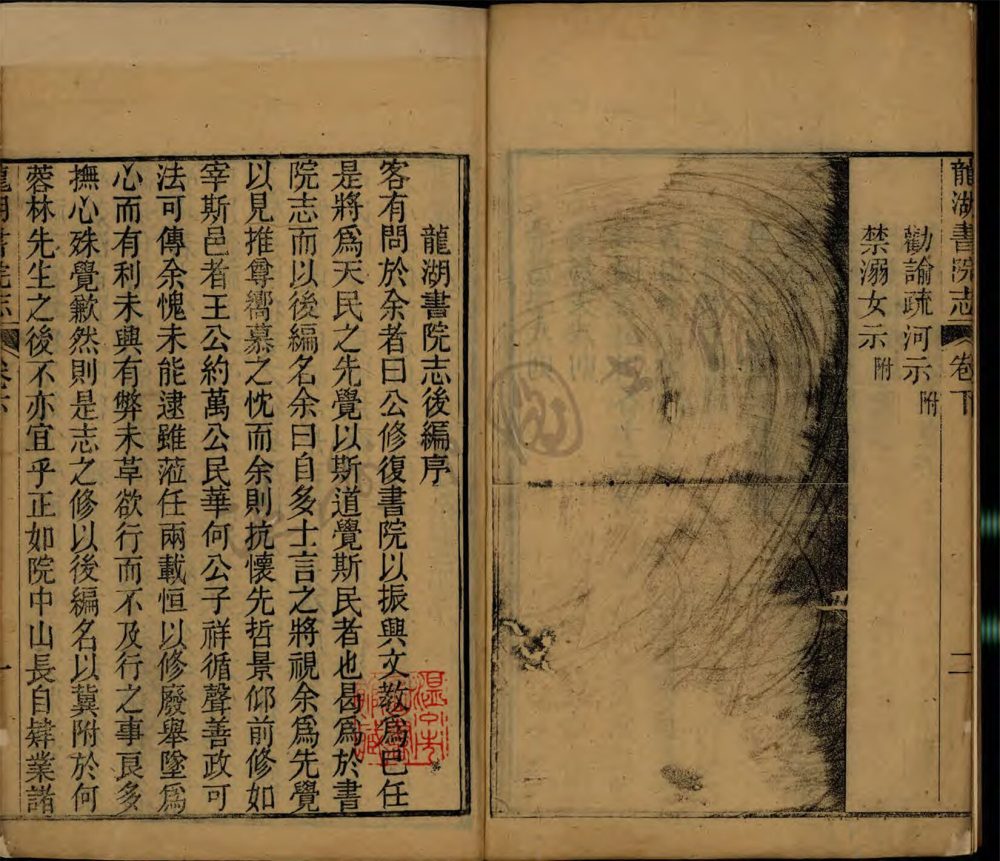 龍湖書院志 卷下 二
勸諭疏河示 附
禁溺女示 附
龍湖書院志後編序
客有問於余者曰公修復書院以振興文教爲邑任
是將爲天民之先覺以斯道覺斯民者也曷爲於書
院志而以後編名余曰自多士言之將視余爲先覺
以見推尊嚮慕之忱而余則抗懷先哲景仰前修如
宰斯邑者王公約萬公民華何公子祥循聲善政可
法可傳余愧未能逮雖蒞任兩載恒以修廢舉墜爲
心而有利未興有弊未革欲行而不及行之事良多
撫心殊覺歉然則是志之修以後編名以冀附於何
蓉林先生之後不亦宜乎正如院中山長自肄業諸
龍湖書院志 一